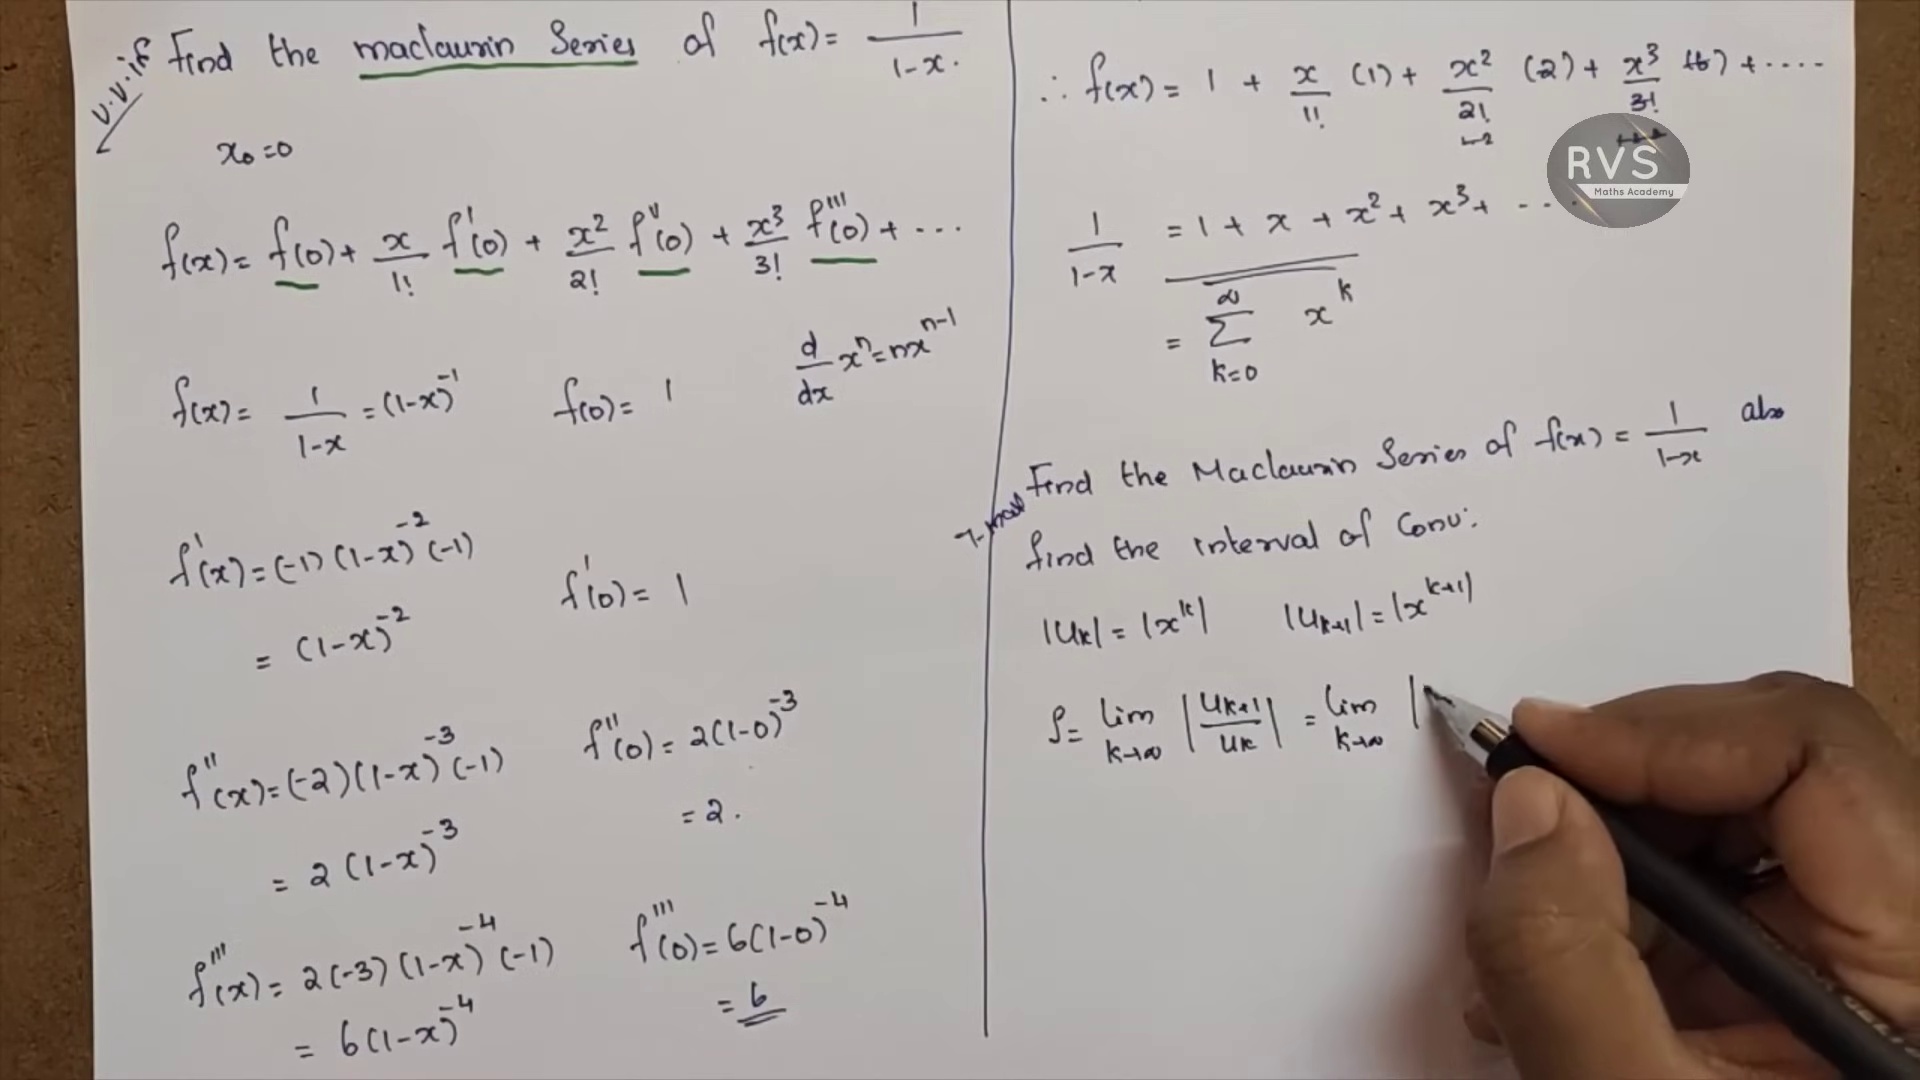 v.v.if Find the maclaurin Series of f(x) = 1/(1-x).
x₀=0
f(x) = f(0) + x/1! f'(0) + x²/2! f''(0) + x³/3! f'''(0) + ...
d/dx xⁿ = nxⁿ⁻¹
f(x) = 1/(1-x) = (1-x)⁻¹ f(0) = 1
f'(x) = (-1)(1-x)⁻²(-1)
= (1-x)⁻² f'(0) = 1
f''(x) = (-2)(1-x)⁻³(-1) f''(0) = 2(1-0)⁻³
= 2(1-x)⁻³ = 2.
f'''(x) = 2(-3)(1-x)⁻⁴(-1) f'''(0) = 6(1-0)⁻⁴
= 6(1-x)⁻⁴ = 6
∴ f(x) = 1 + x/1! (1) + x²/2! (2) + x³/3! (6) + ....
RVS
Maths Academy
1/(1-x) = 1 + x + x² + x³ + ...
= ∞ Σ k=0 xᵏ
Find the Maclaurin Series of f(x) = 1/(1-x) also
find the interval of Conv:
|uₖ| = |xᵏ| |uₖ₊₁| = |xᵏ⁺¹|
ρ = lim k→∞ |uₖ₊₁/uₖ| = lim k→∞ |